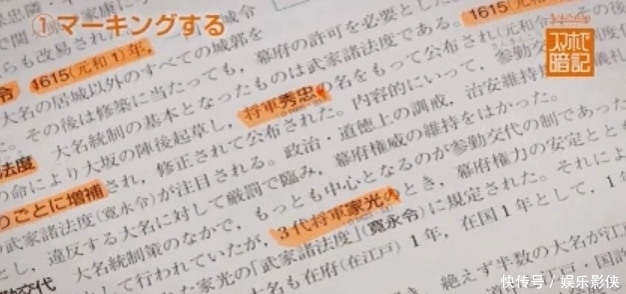 ①マーキングする
スマホで
暗記
令 1615(元和1)年,
らも改易された
幕府の許可を必要とした
1615(元和令
大名の居城以外のすべての城郭を
た。その後は修築に当たっても,
大名統制の基本となったものは武家諸法度である。
の命により大坂の陣後起草し, 将軍秀忠の名をもって公布され
法度
ごとに増補され, 修正されて公布された。内容的にいって, 参勤交
の武家諸法度(寛永令)が注目される。政治・道徳上の調戒, 治安維持
とし, 違反する大名に対して厳罰で臨み, 幕府権威の維持をはかった。
大名統制策のなかで, もっとも中心となるのが参勤交代の制であった
勤交代
して行われていたが, 3代将軍家光のとき, 幕府権力の安定ととも
た家光の「武家諸法度」(寛永令)に規定された。それによ
大名も在府(在江戸)1年, 在国1年として, 1年
絶えず半数の大名が江
快传号/娱乐影侠